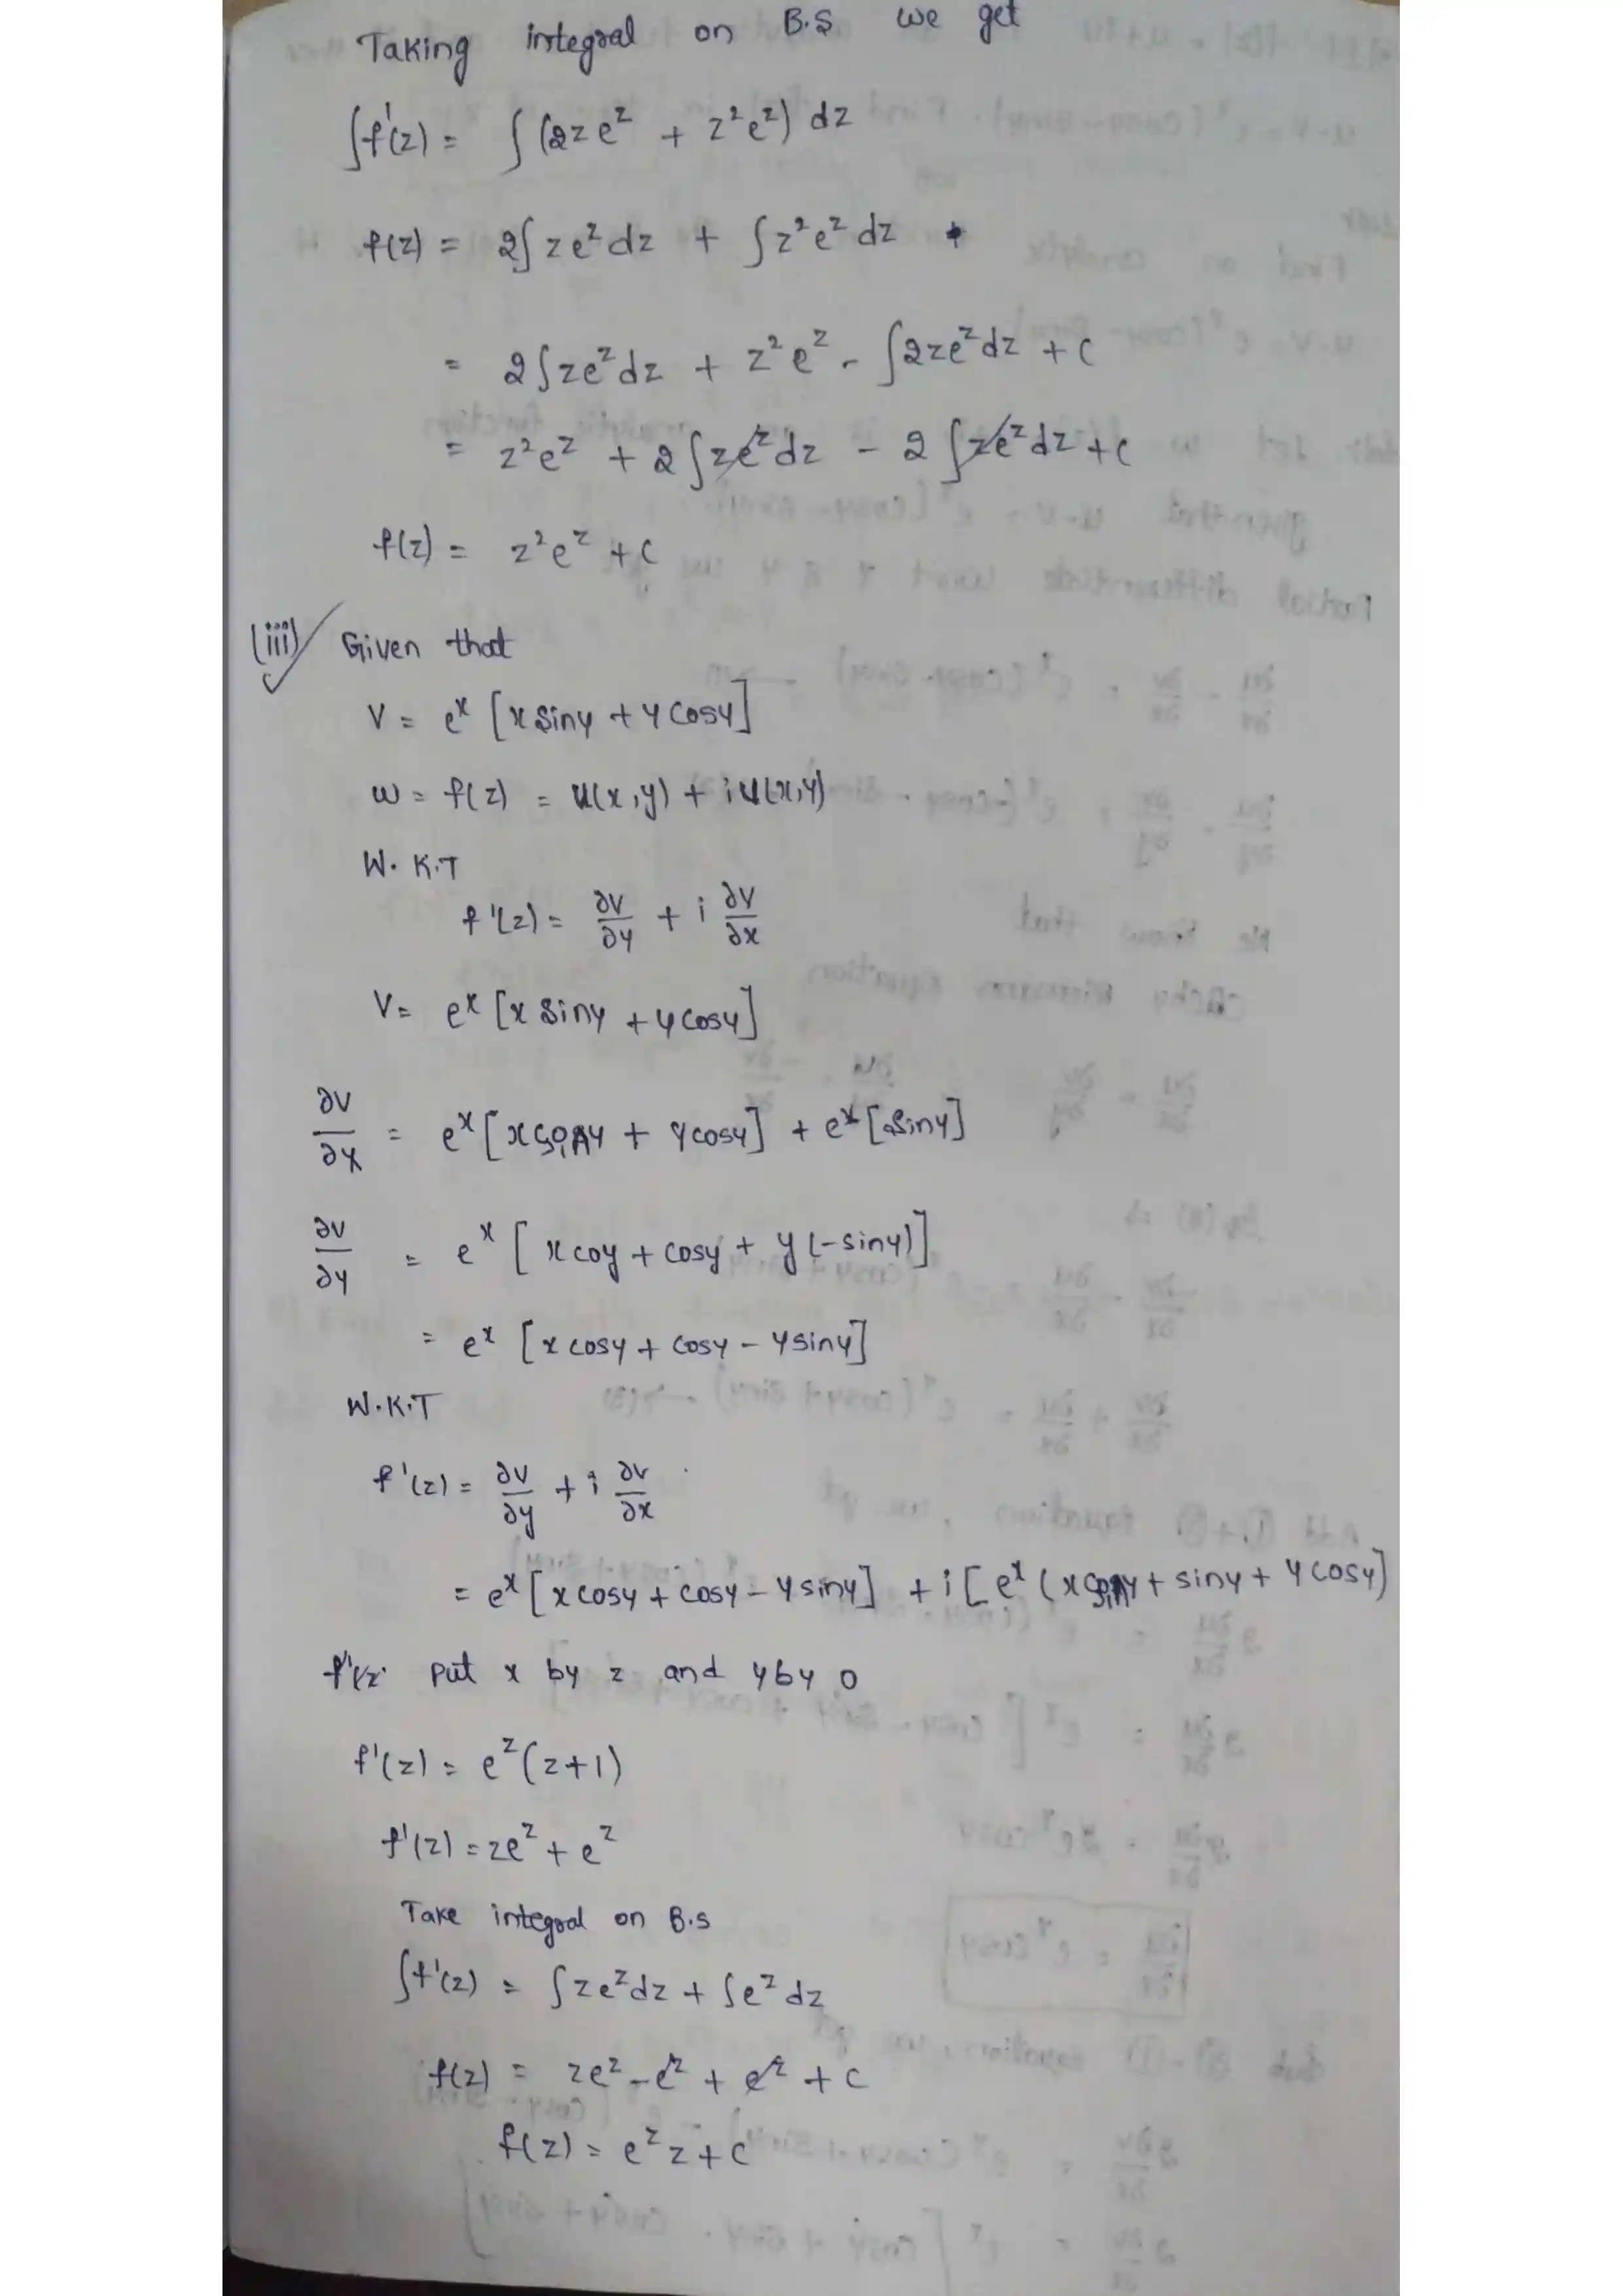 Taking integral on B.S we get
∫f'(z) = ∫(2ze^z + z²e^z) dz
f(z) = 2∫ze^z dz + ∫z²e^z dz +
= 2∫ze^z dz + z²e^z - ∫2ze^z dz + c
= z²e^z + 2∫ze^z dz - 2∫ze^z dz + c
f(z) = z²e^z + c
(iii) Given that
V = e^x [x siny + y cosy]
w = f(z) = u(x,y) + iu(x,y)
W.K.T
f'(z) = ∂v/∂y + i ∂v/∂x
V = e^x [x siny + y cosy]
∂v/∂x = e^x [x siny + y cosy] + e^x [siny]
∂v/∂y = e^x [x coy + cosy + y(-siny)]
= e^x [x cosy + cosy - y siny]
W.K.T
f'(z) = ∂v/∂y + i ∂v/∂x
= e^x [x cosy + cosy - y siny] + i[e^x (x siny + siny + y cosy]
f'(z put x by z and y by 0
f'(z) = e^z (z+1)
f'(z) = ze^z + e^z
Take integral on B.S
∫f'(z) = ∫ze^z dz + ∫e^z dz
f(z) = ze^z - e^z + e^z + c
f(z) = e^z z + c